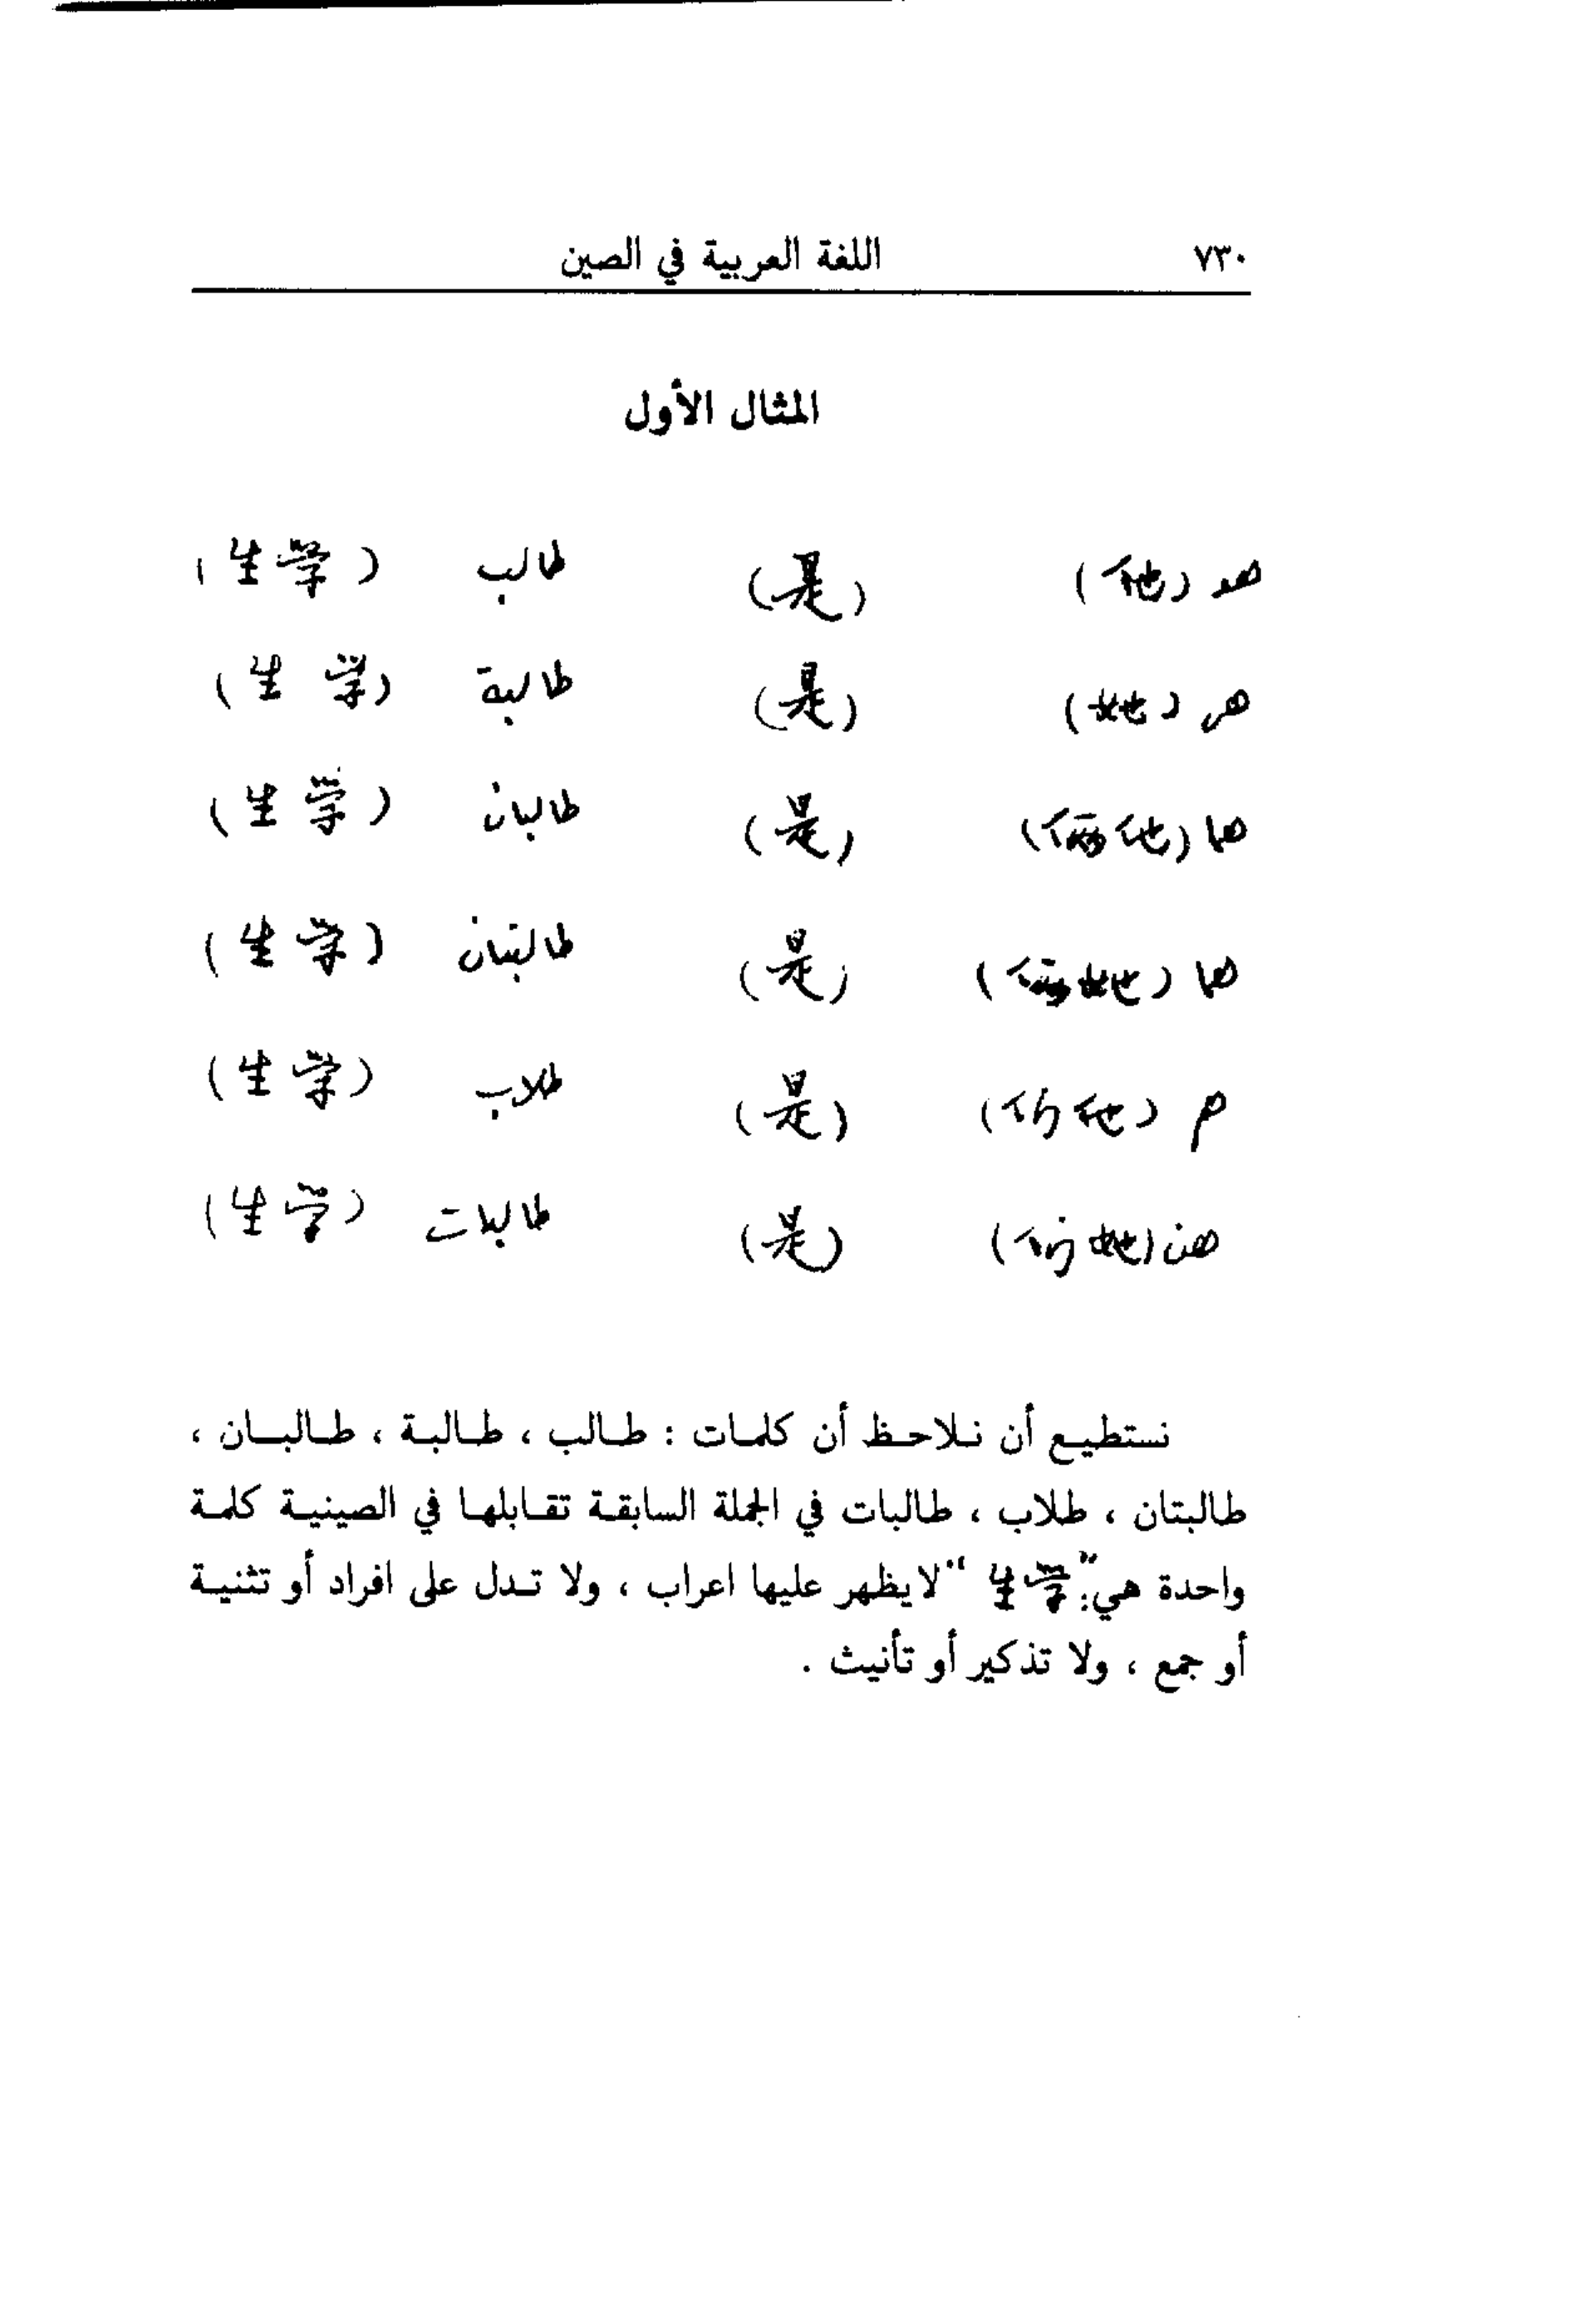 ٧٣٠ اللغة العربية في الصين
المثال الأول
هو (他) (是) طالب (学生)
هي (她) (是) طالبة (学生)
هما (他俩) (是) طالبان (学生)
هما (她俩) (是) طالبتان (学生)
هم (他们) (是) طلاب (学生)
هن (她们) (是) طالبات (学生)
نستطيع أن نلاحظ أن كلمات : طالب ، طالبة ، طالبان ،
طالبتان ، طلاب ، طالبات في الجملة السابقة تقابلها في الصينية كلمة
واحدة هي: "学生" لا يظهر عليها اعراب ، ولا تدل على افراد أو تثنية
أو جمع ، ولا تذكير أو تأنيث .